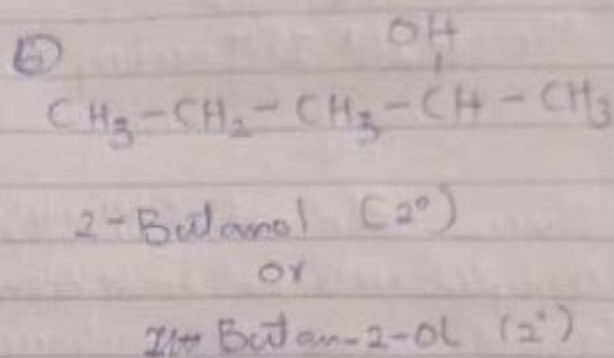 6
OH
CH₃-CH₂-CH₃-CH-CH₃
2-Butanol (2°)
or
Butan-2-ol (2°)